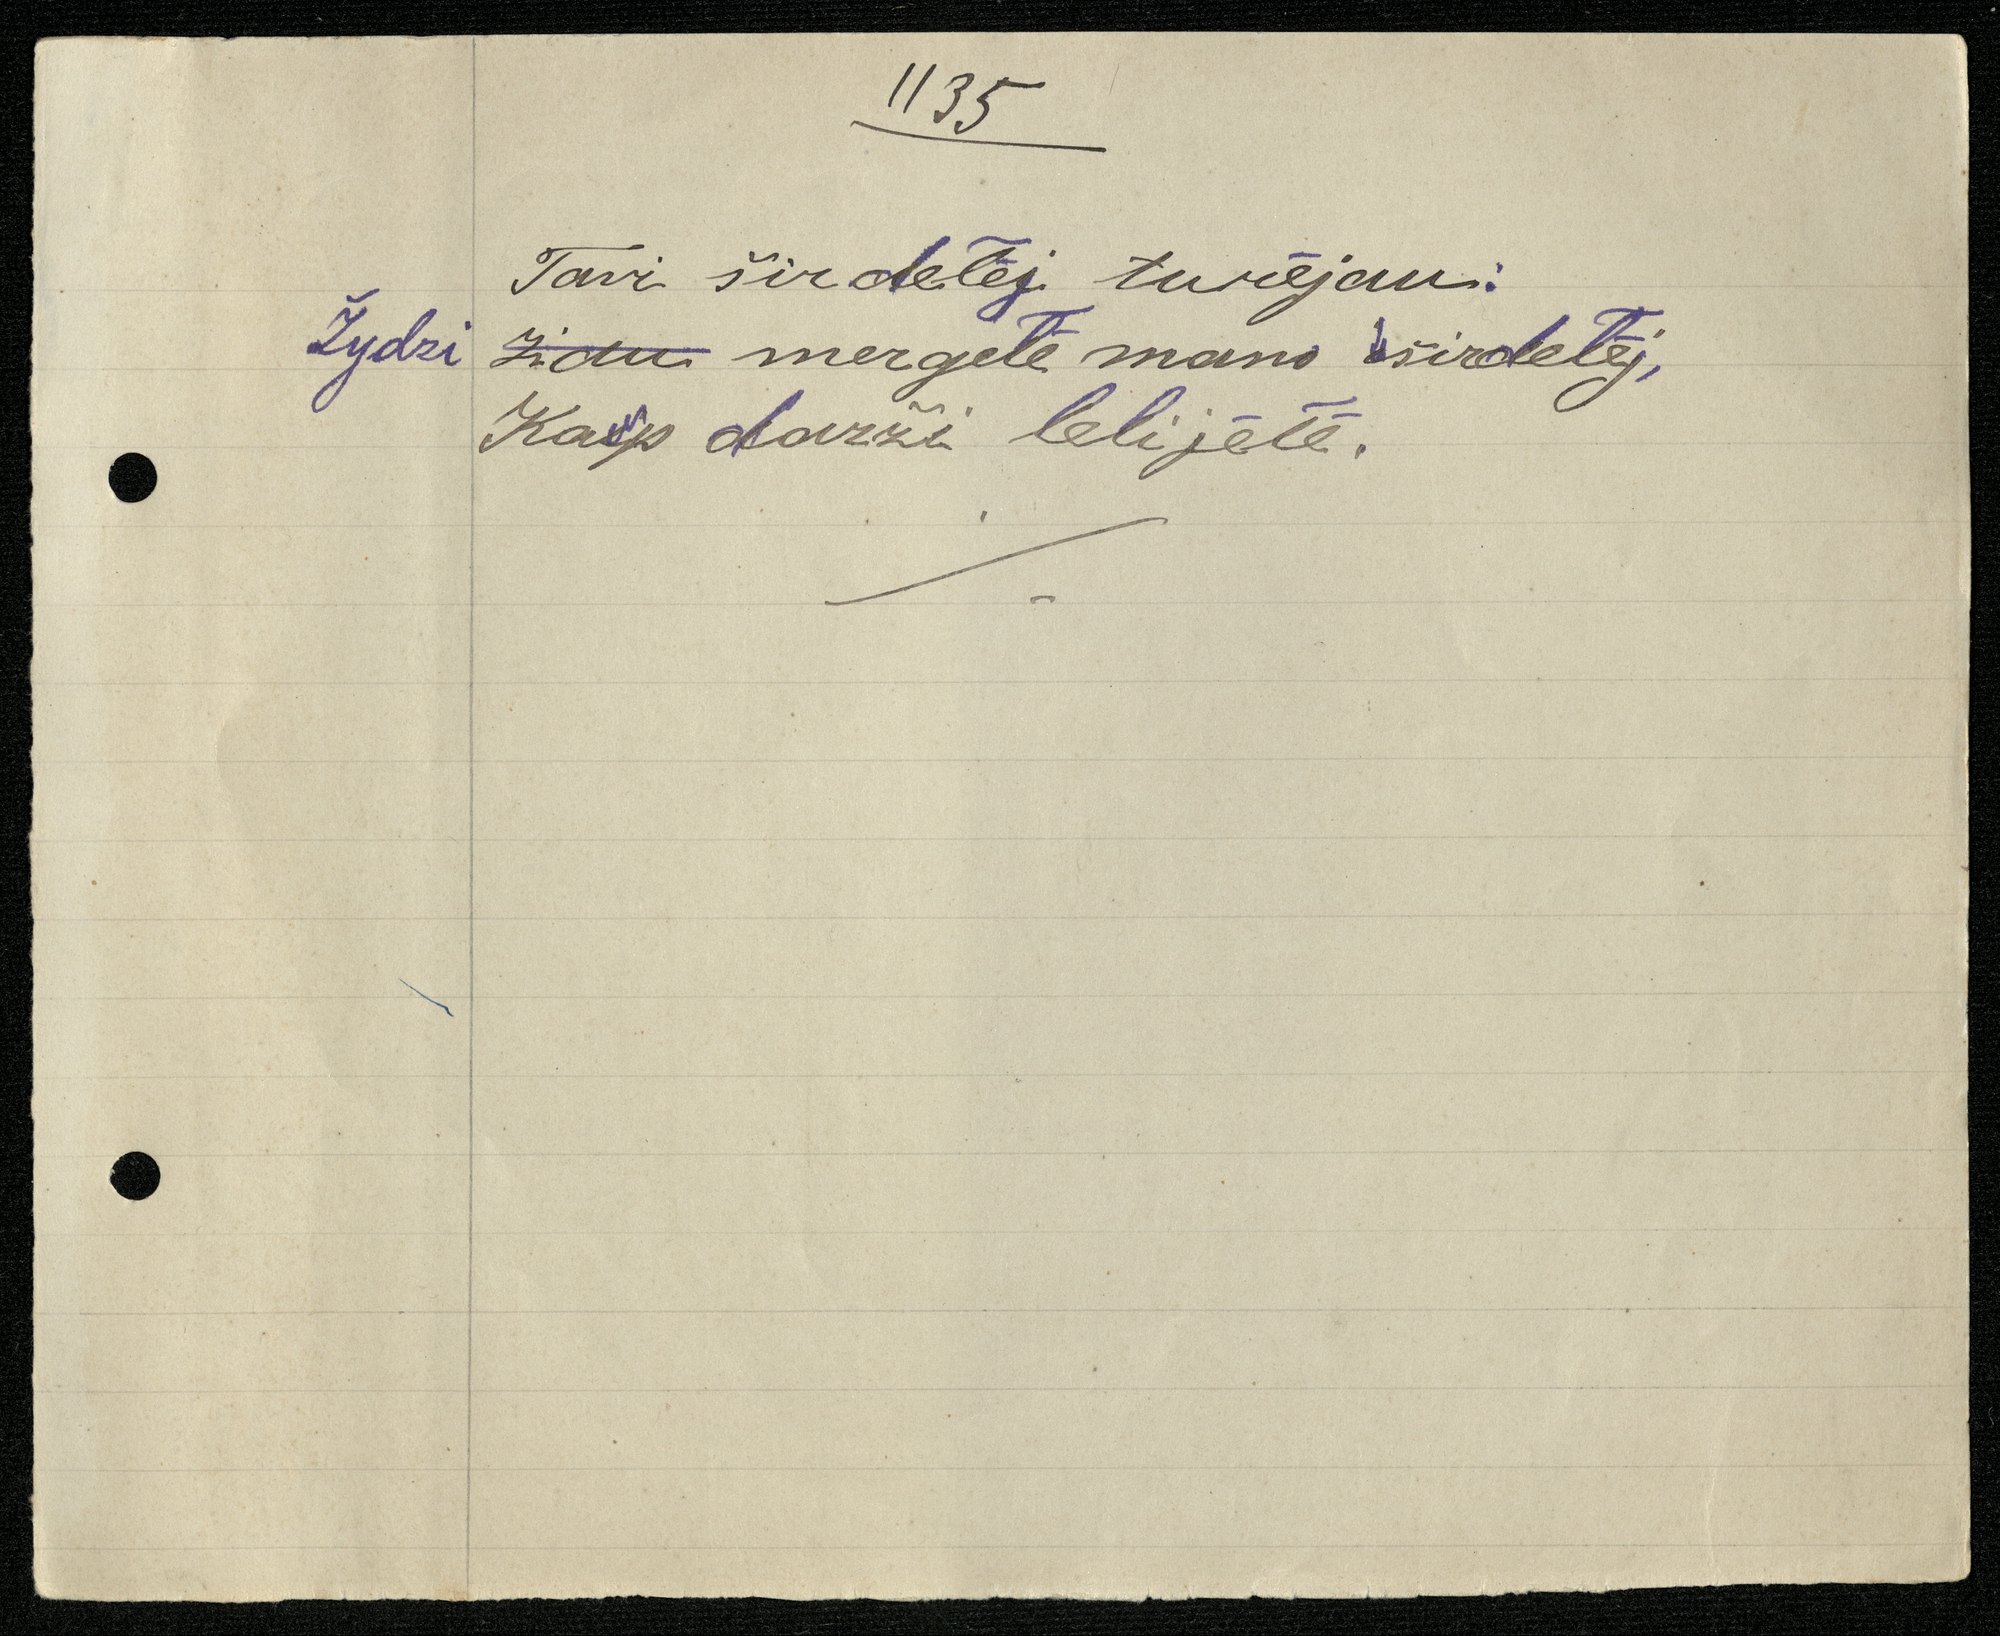 1135
Tavi širdetēj turējau:
Žydzi ~~Židu~~ mergetē mano širdetēj,
Kaip darži lelijētē.